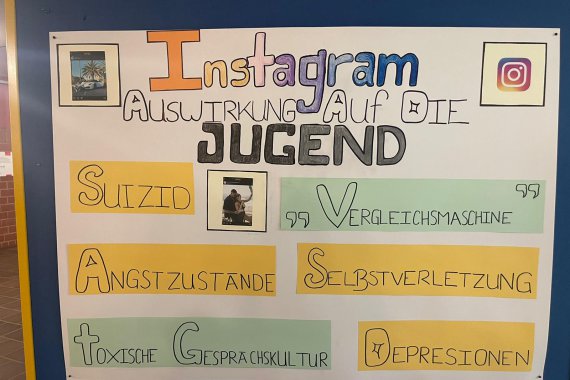 Instagram
AUSWIRKUNG AUF DIE
JUGEND
SUIZID
„VERGLEICHSMASCHINE"
ANGSTZUSTÄNDE
SELBSTVERLETZUNG
TOXISCHE GESPRÄCHSKULTUR
DEPRESIONEN